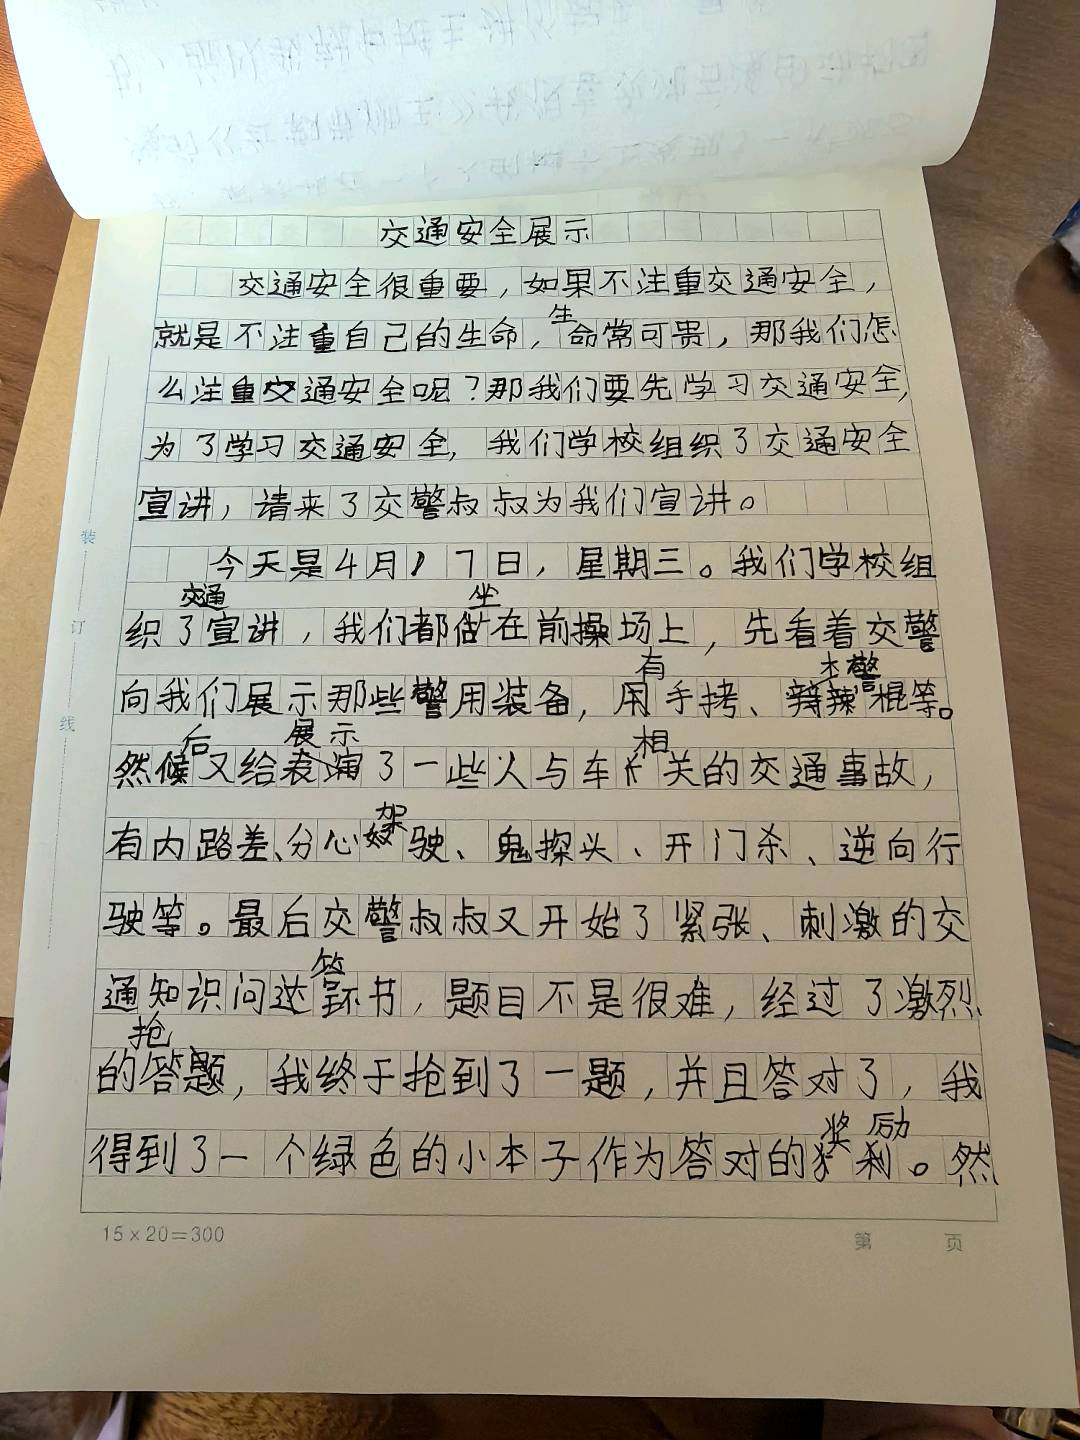 交通安全展示
交通安全很重要，如果不注重交通安全，
生
就是不注重自己的生命，命常可贵，那我们怎
么注重交通安全呢？那我们要先学习交通安全，
为了学习交通安全，我们学校组织了交通安全
宣讲，请来了交警叔叔为我们宣讲。
今天是4月17日，星期三。我们学校组
交通 坐
织了宣讲，我们都做在前操场上，先看着交警
有 木警
向我们展示那些警用装备，用手拷、辩辣棍等。
后 展示 相
然候又给表演了一些人与车关的交通事故，
架
有内路差、分心驶、鬼探头、开门杀、逆向行
驶等。最后交警叔叔又开始了紧张、刺激的交
答
通知识问达环书，题目不是很难，经过了激烈
抢
的答题，我终于抢到了一题，并且答对了，我
奖励
得到了一个绿色的小本子作为答对的。然
15×20=300
第 页
装
订
线